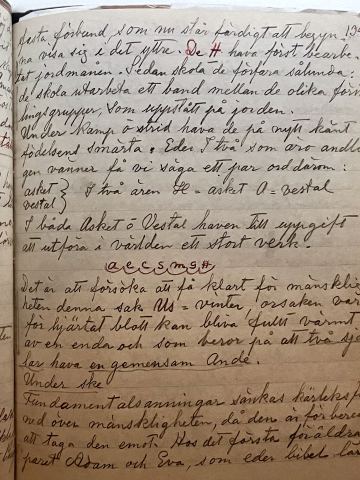 sasta förbund, som nu står färdigt att begyn 19
na visa sig i det yttre. De H hava först bearbe
tat jordmånen. Sedan skola de förfara sålunda:
de skola utarbeta ett band mellan de olika för
lingsgrupper, som uppstått på jorden.
Under kamp o strid hava de på nytt känt
födelsens smärta. Eder I två som äro andli
gen vänner få vi säga ett par ord därom:
asket } I två ären H = asket A = vestal
vestal
I båda Asket o Vestal haven till uppgift
att utföra i världen ett stort verk.
a e c s m g H
Det är att försöka att få klart för mänsklig
heten denna sak Us = vinter, orsaken var
för hjärtat blott kan bliva fullt värmt
av en enda och som beror på att två sjä
lar hava en gemensam Ande.
Under ske
Fundamentalsanningar sänkas kärleksf
ned över mänskligheten, då den är för bere
att taga den emot. Hos det första föräldra
paret Adam och Eva, som eder bibel lär